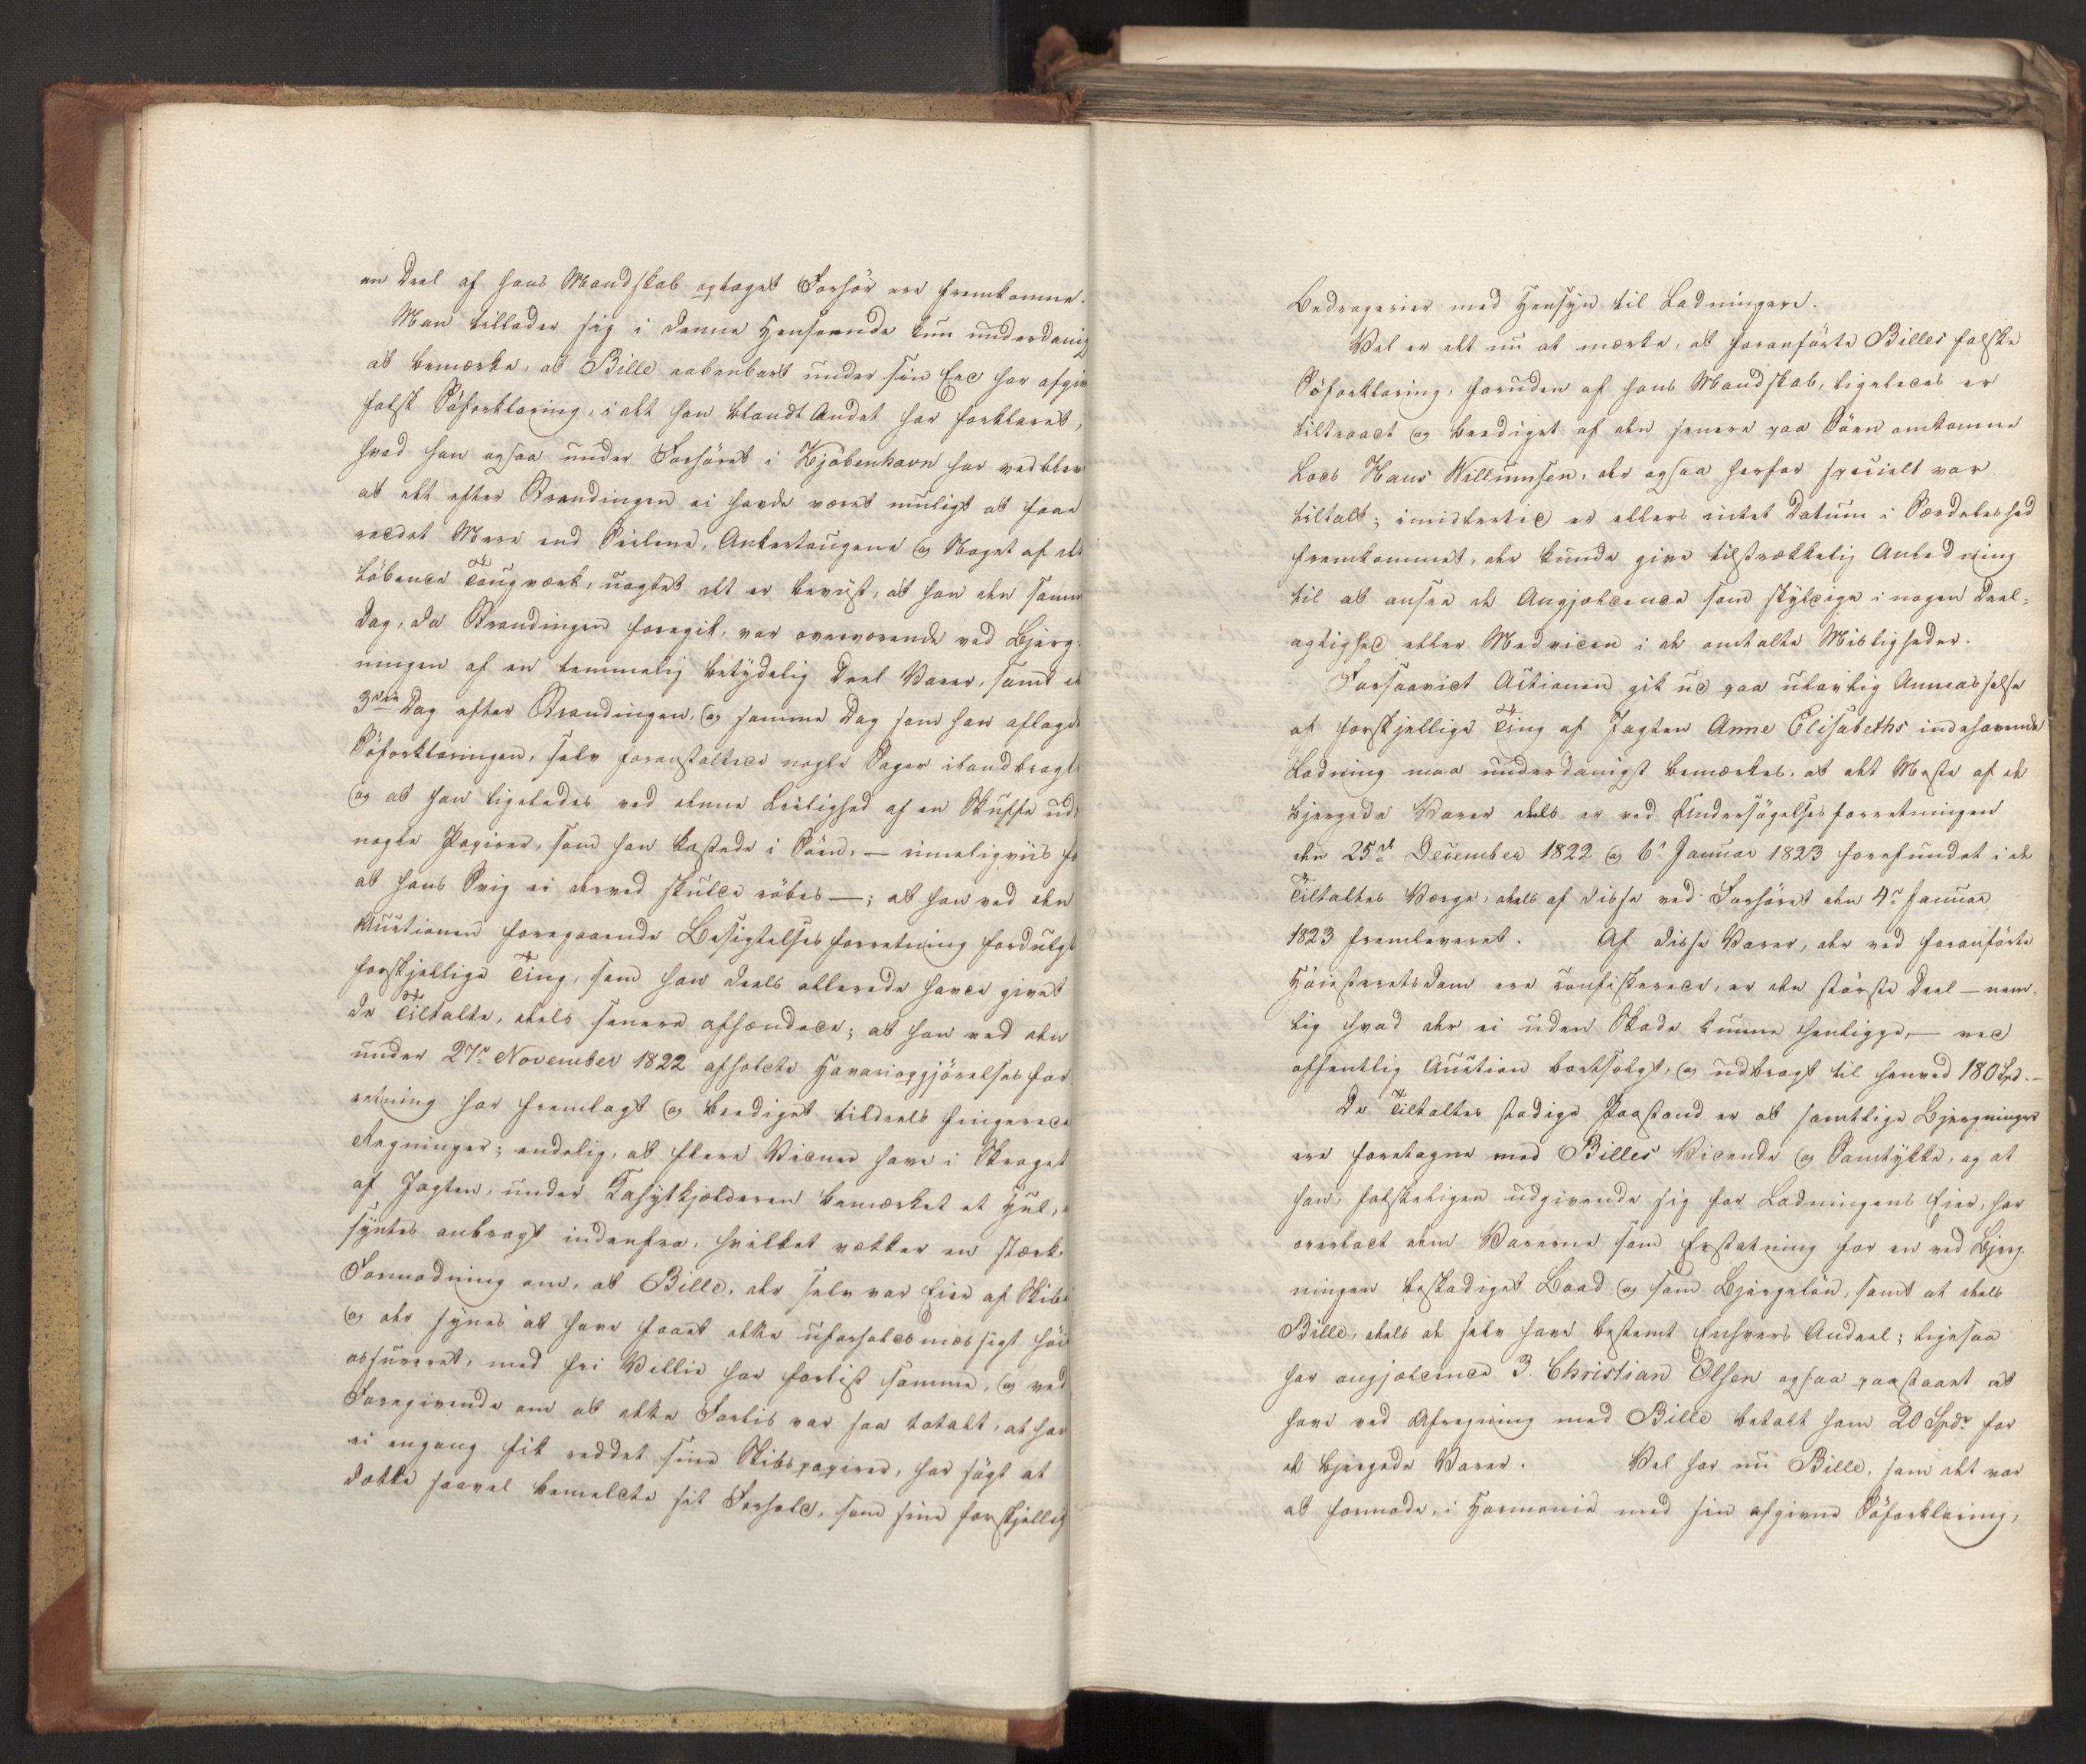 en Deel af hans Mandskab optaget Forhör ere fremkomne.
Man tillader sig i denne Henseende kun underdanig
at bemærke, at Bille aabenbart under sin Eed har afgiv
falsk Söforklaring, i det han blandt Andet har forklaret,
hvad han ogsaa under Forhöret i Kjöbenhavn har vedblev
at det efter Strandingen ei havde været muligt at faae
reddet Mere end Seilene, Ankertougene og Noget af det
löbende Tougværk, uagtet det er beviist, at han den samme
Dag, da Strandingen foregik, var overværende ved Bjerg-
ningen af en temmelig betydelig Deel Varer, samt at
3die Dag efter Strandingen, og samme Dag som han aflagde
Söforklaringen, selv foranstaltede nogle Sager ilandbragte
og at han ligeledes ved denne Leilighed af en Skuffe ud-
nogle Papirer, som han kastede i Söen, — rimeligviis for
at hans Svig ei derved skulde röbes —; at han ved den
Auctionen foregaaende Besigtelsesforretning fordulgte
forskjellige Ting, som han deels allerede havde givet
de Tiltalte, deels senere afhændede; at han ved den
under 27de November 1822 afholdte Havariopgjörelsesfor
retning har fremlagt og beediget tildeels fingerede
Regninger; endelig, at flere Vidner have i Skroget
af Jagten, under Kahytkjælderen bemærket et Hul,
syntes anbragt indenfra, hvilket vækker en stærk
Formodning om, at Bille, der selv var Eier af Skibet
og der synes at have faaet dette uforholdsmæssigt höit
assureret, med fri Villie har forliist samme, og ved
Foregivende om at dette Forliis var saa totalt, at han
ei engang fik reddet sine Skibspapirer, har sögt at
dække saavel bemeldte sit Forhold, som sine forskjellig
Bedragerier med Hensyn til Ladningen.
Vel er det nu at mærke, at foranförte Billes falske
Söforklaring, foruden af hans Mandskab, ligeledes er
tiltraadt og beediget af den senere paa Söen omkomne
Lods Hans Willumsen, der ogsaa herfor specielt var
tiltalt; imidlertid er ellers intet Datum i Særdeleshed
fremkommet, der kunde give tilstrækkelig Anledning
til at ansee de Angjældende som skyldige i nogen Deel-
agtighed eller Medviden i de omtalte Misligheder.
Forsaavidt Actionen gik ud paa ulovlig Annammelse
af forskjellige Ting af Jagten Anne Elisabeths indehavende
Ladning maa underdanigst bemærkes, at det Meste af de
bjergede Varer deels er ved Undersögelsesforretningen
den 25de December 1822 og 6te Januar 1823 forefundet i de
Tiltaltes Værge, deels af disse ved Forhöret den 4de Januar
1823 fremleveret. Af disse Varer, der ved foranförte
Höiesteretsdom ere confiskerede, er den störste Deel — nem-
lig hvad der ei uden Skade kunne henligge, — ved
offentlig Auction bortsolgt, og udbragt til henved 180 Spd. —
De Tiltaltes stadige Paastand er at samtlige Bjergninger
ere foretagne med Billes Vidende og Samtykke, og at
han, falskeligen udgivende sig for Ladningens Eier, har
overladt dem Varerne som Erstatning for en ved Bjerg-
ningen beskadiget Baad og som Bjergelön, samt at deels
Bille, deels de selv have bestemt Enhvers Andeel; ligesaa
har angjældende 3. Christian Olsen ogsaa paastaaet at
have ved Afregning med Bille betalt ham 20 Spdr for
de bjergede Varer. Vel har nu Bille, som det var
at formode, i Harmonie med sin afgivne Söforklaring,